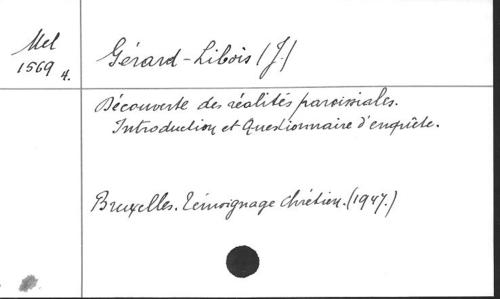 Mel
1569 4.
Gérard-Libois (J.)
Découverte des réalités paroissiales.
Introduction et Questionnaire d'enquête.
Bruxelles. Témoignage chrétien. (1947.)